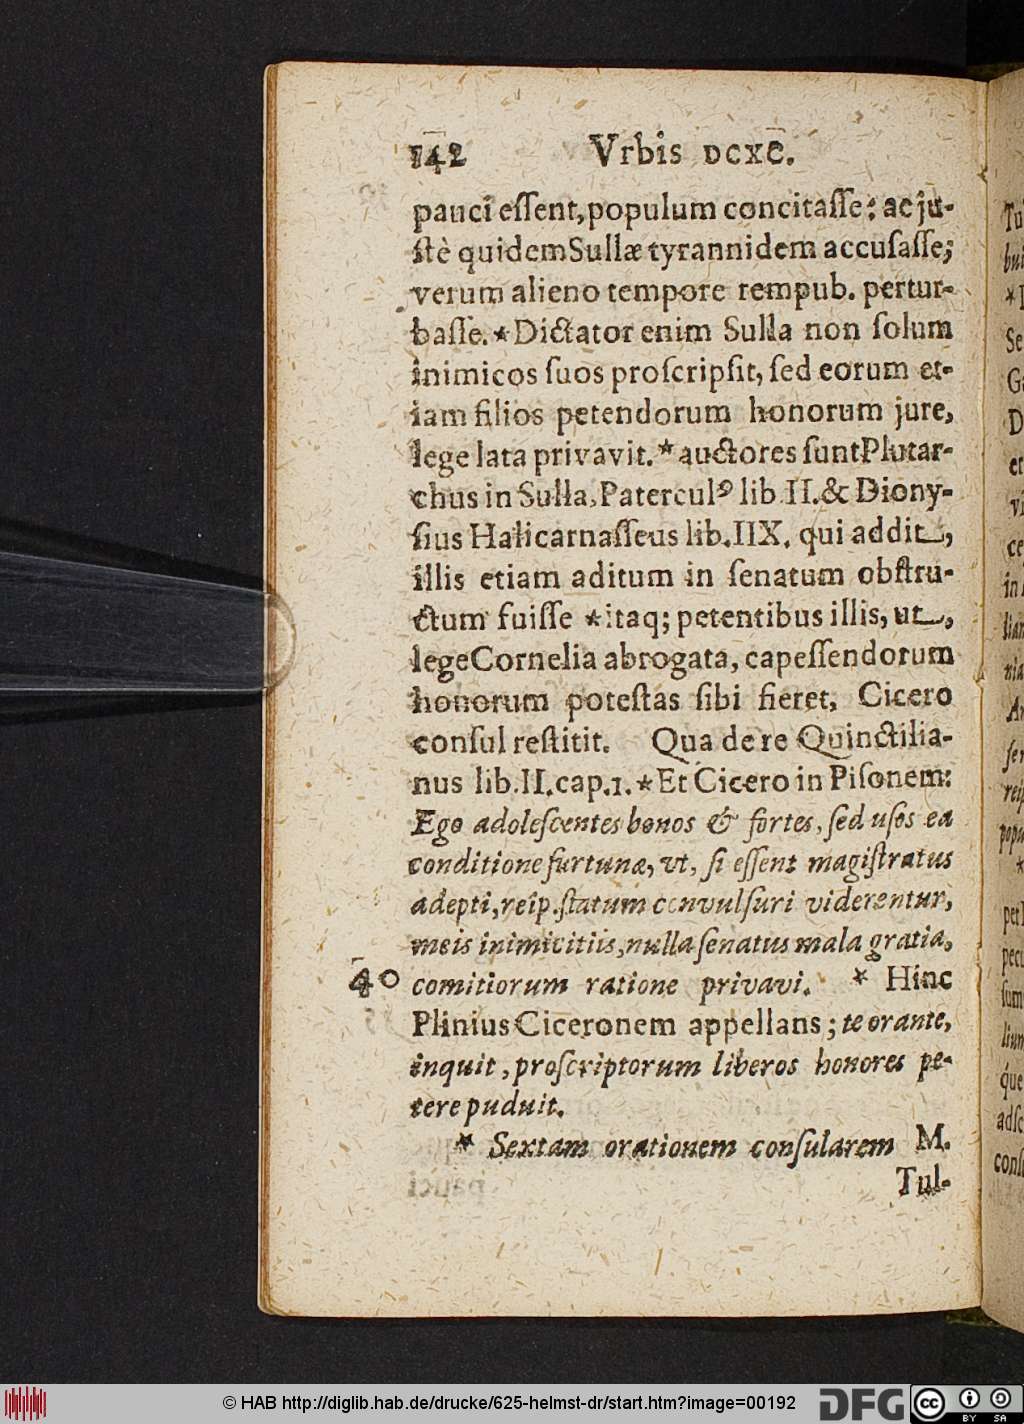 142 Vrbis DCXC.
pauci eſſent, populum concitaſſe: ac ju-
ſtè quidem Sullæ tyrannidem accuſaſſe;
verum alieno tempore rempub. pertur-
baſſe. * Dictator enim Sulla non ſolum
inimicos ſuos proſcripſit, ſed eorum et-
iam filios petendorum honorum jure,
lege lata privavit. * auctores ſunt Plutar-
chus in Sulla, Paterculꝰ lib. II. & Diony-
ſius Halicarnaſſeus lib. IIX. qui addit,
illis etiam aditum in ſenatum obſtru-
ctum fuiſſe * itaq; petentibus illis, ut,
lege Cornelia abrogata, capeſſendorum
honorum poteſtas ſibi fieret, Cicero
conſul reſtitit. Qua de re Quinctilia-
nus lib. II. cap. 1. * Et Cicero in Piſonem:
Ego adoleſcentes bonos & fortes, ſed uſos ea
conditione furtunæ, vt, ſi eſſent magiſtratus
adepti, reip. ſtatum convulſuri viderentur,
meis inimicitiis, nulla ſenatus mala gratia,
40 comitiorum ratione privavi. * Hinc
Plinius Ciceronem appellans; te orante,
inquit, proſcriptorum liberos honores pe-
tere puduit.
* Sextam orationem conſularem M.
Tul-
Tu
bui
Se
D
et
vi
ce
in
lian
nia
reip
popu
pet
pecu
ſum
lium
que
adſc
conſ
© HAB http://diglib.hab.de/drucke/625-helmst-dr/start.htm?image=00192
DFG
cc
BY SA